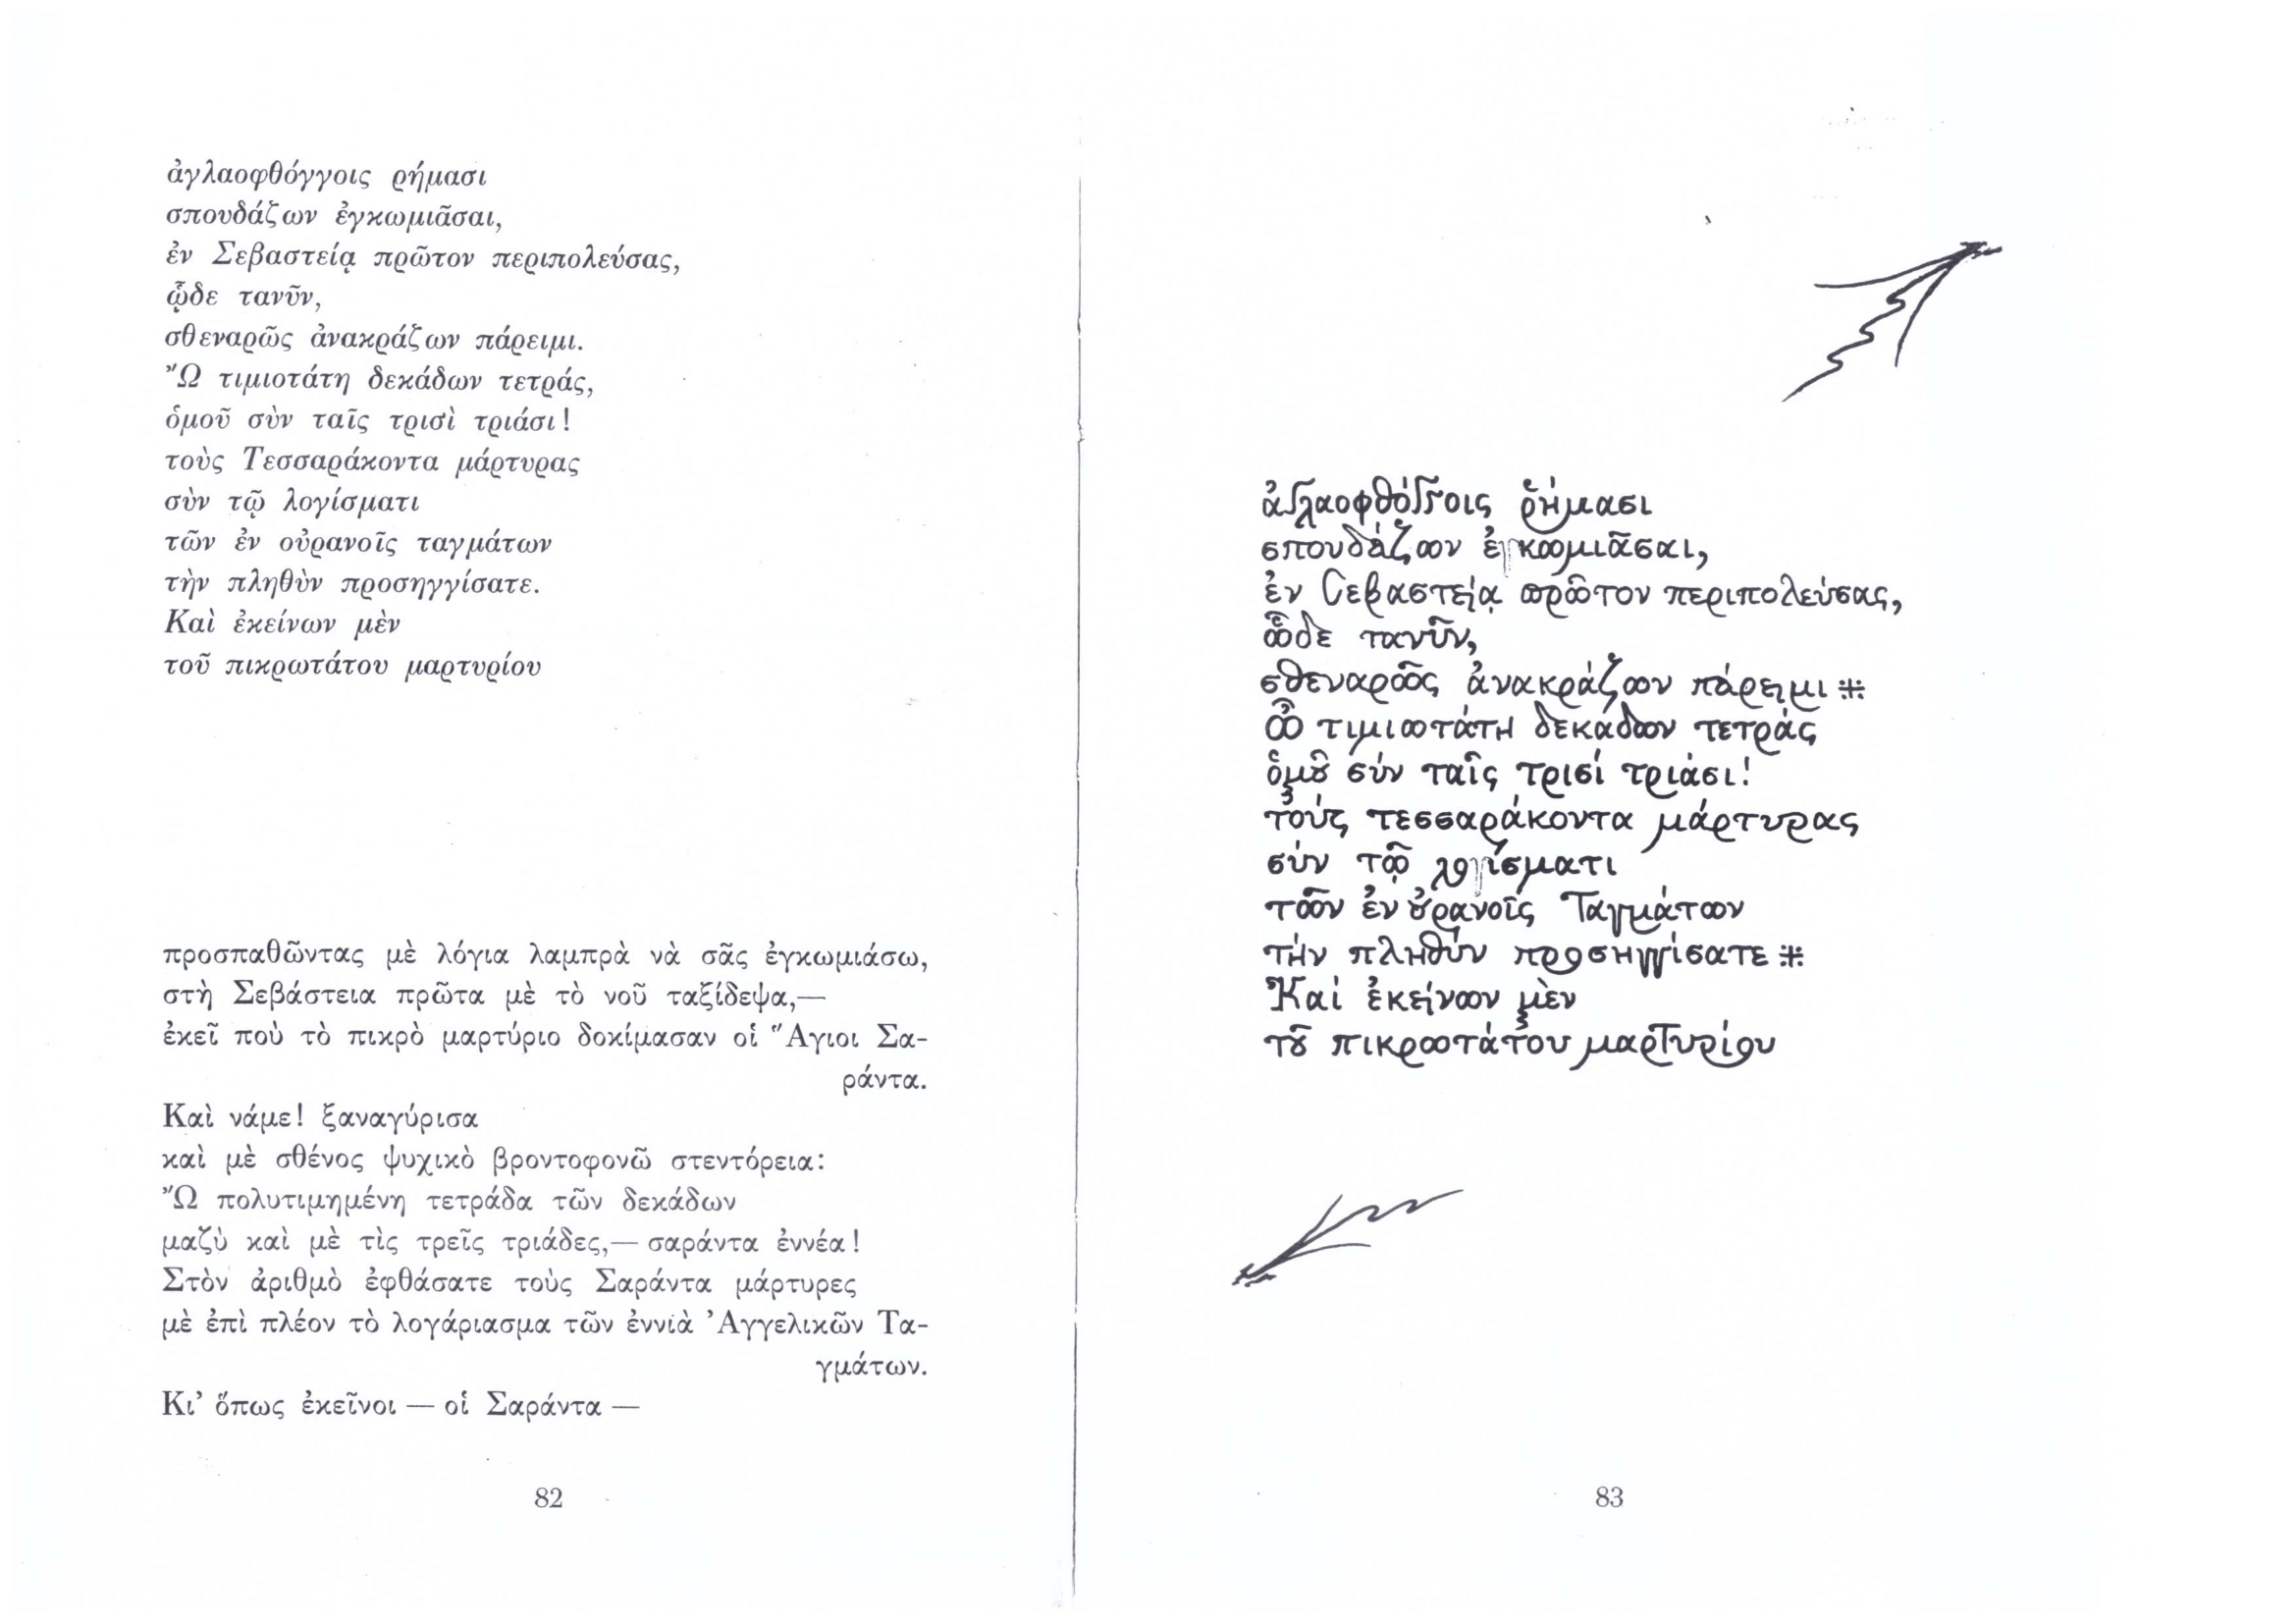 ἀγλαοφθόγγοις ρήμασι
σπουδάζων ἐγκωμιᾶσαι,
ἐν Σεβαστείᾳ πρῶτον περιπολεύσας,
ᾧδε τανῦν,
σθεναρῶς ἀνακράζων πάρειμι.
Ὢ τιμιοτάτη δεκάδων τετράς,
ὁμοῦ σὺν ταῖς τρισὶ τριάσι!
τοὺς Τεσσαράκοντα μάρτυρας
σὺν τῷ λογίσματι
τῶν ἐν οὐρανοῖς ταγμάτων
τὴν πληθὺν προσηγγίσατε.
Καὶ ἐκείνων μὲν
τοῦ πικρωτάτου μαρτυρίου
προσπαθῶντας μὲ λόγια λαμπρὰ νὰ σᾶς ἐγκωμιάσω,
στὴ Σεβάστεια πρῶτα μὲ τὸ νοῦ ταξίδεψα,—
ἐκεῖ ποὺ τὸ πικρὸ μαρτύριο δοκίμασαν οἱ Ἅγιοι Σα-
ράντα.
Καὶ νάμε! ξαναγύρισα
καὶ μὲ σθένος ψυχικὸ βροντοφονῶ στεντόρεια:
Ὢ πολυτιμημένη τετράδα τῶν δεκάδων
μαζὺ καὶ μὲ τὶς τρεῖς τριάδες,— σαράντα ἐννέα!
Στὸν ἀριθμὸ ἐφθάσατε τοὺς Σαράντα μάρτυρες
μὲ ἐπὶ πλέον τὸ λογάριασμα τῶν ἐννιὰ Ἀγγελικῶν Τα-
γμάτων.
Κι’ ὅπως ἐκεῖνοι — οἱ Σαράντα —
82
ἀγλαοφθόγγοις ῥήμασι
σπουδάζων ἐγκωμιᾶσαι,
ἐν Σεβαστείᾳ πρῶτον περιπολεύσας,
ὧδε τανῦν,
σθεναρῶς ἀνακράζων πάρειμι ※
Ὦ τιμιωτάτη δεκάδων τετράς
ὁμοῦ σύν ταῖς τρισί τριάσι!
τούς τεσσαράκοντα μάρτυρας
σύν τῷ λογίσματι
τῶν ἐν οὐρανοῖς Ταγμάτων
τήν πληθύν προσηγγίσατε ※
Καί ἐκείνων μὲν
τοῦ πικρωτάτου μαρτυρίου
83